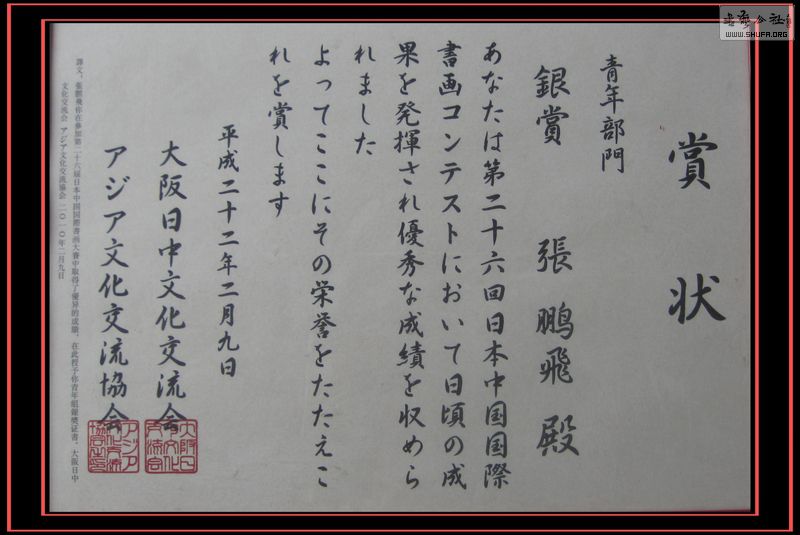 賞状
青年部門
銀賞　張鵬飛殿
あなたは第二十六回日本中国国際
書画コンテストにおいて日頃の成
果を発揮され優秀な成績を収めら
れました
よってここにその栄誉をたたえこ
れを賞します
平成二十二年二月九日
大阪日中文化交流会
アジア文化交流協会
譯文：張鵬飛你在參加第二十六屆日本中国国際書画大賽中取得了優异的成績，在此授予你青年組銀獎证書。大阪日中
文化交流会　アジア文化交流協会 二〇一〇年二月九日
WWW.SHUFA.ORG